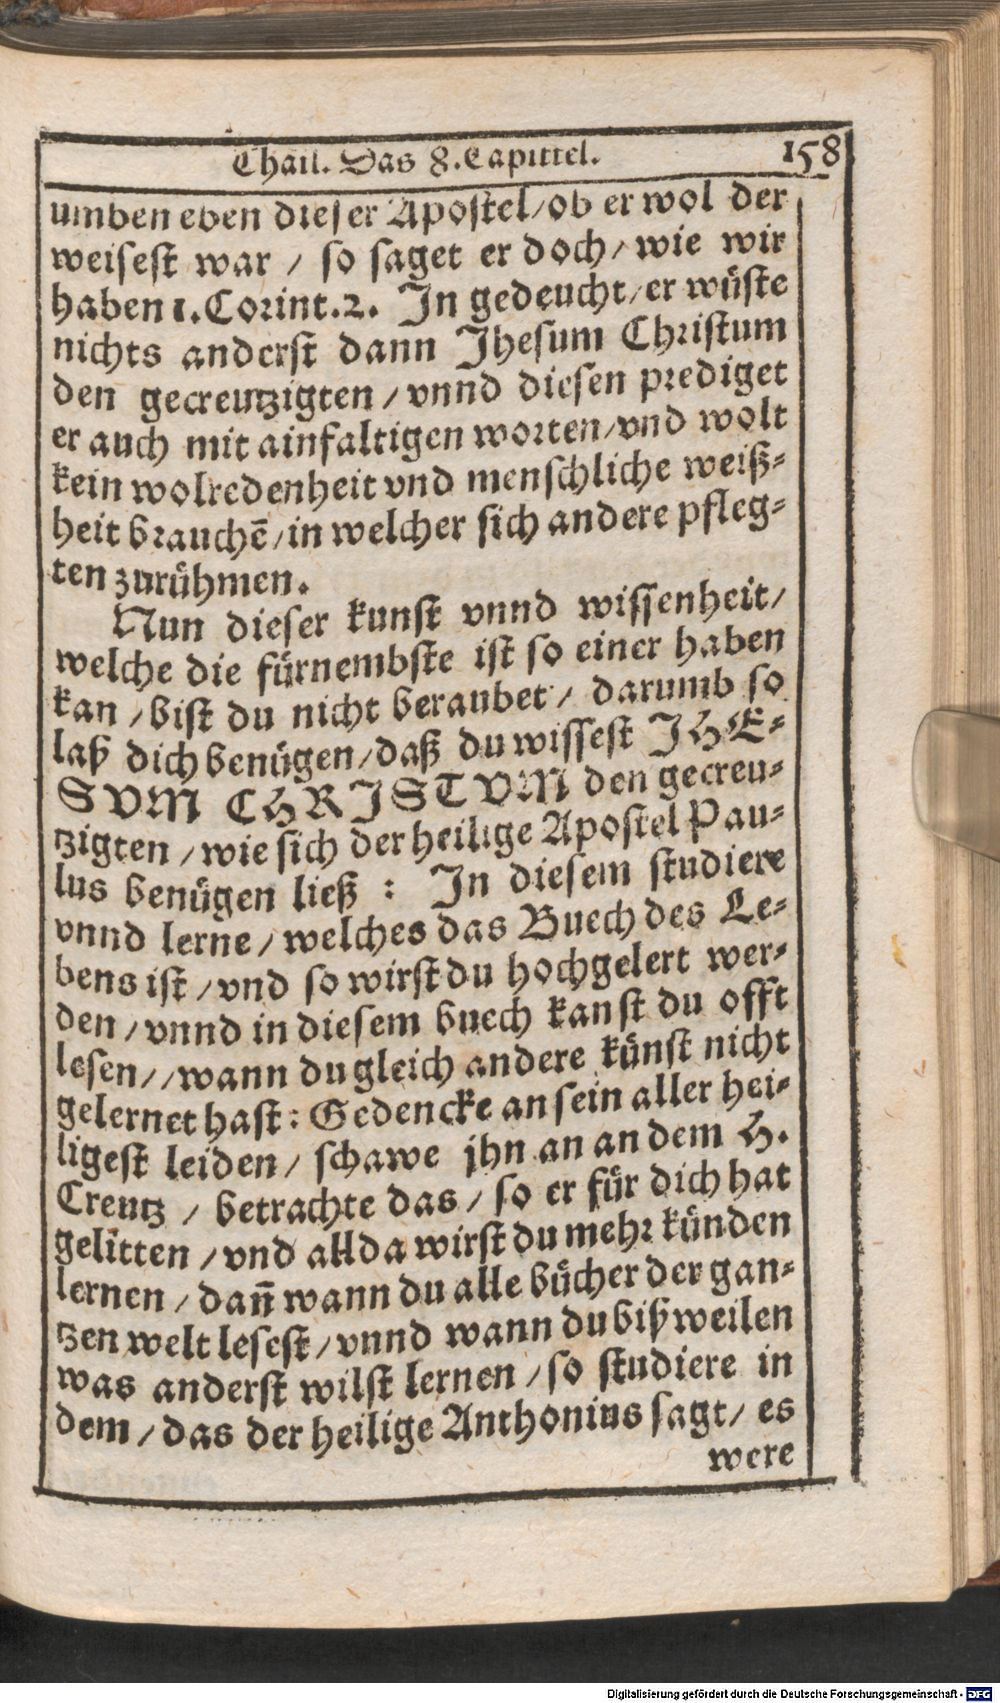 Thail. Das 8. Capittel. 158
umben eben dieser Apostel / ob er wol der
weisest war / so saget er doch / wie wir
haben 1. Corint. 2. In gedeucht / er wüste
nichts anderst dann Jhesum Christum
den gecreutzigten / vnnd diesen prediget
er auch mit ainfaltigen worten / vnd wolt
kein wolredenheit vnd menschliche weiß-
heit brauchē / in welcher sich andere pfleg-
ten zurühmen.
Nun dieser kunst vnnd wissenheit /
welche die fürnembste ist so einer haben
kan / bist du nicht beraubet / darumb so
laß dich benügen / daß du wissest JHE-
SVM CHRISTVM den gecreu-
tzigten / wie sich der heilige Apostel Pau-
lus benügen ließ : In diesem studiere
vnnd lerne / welches das Buech des Le-
bens ist / vnd so wirst du hochgelert wer-
den / vnnd in diesem buech kanst du offt
lesen / / wann du gleich andere künst nicht
gelernet hast : Gedencke an sein aller hei-
ligest leiden / schawe jhn an an dem H.
Creutz / betrachte das / so er für dich hat
gelitten / vnd allda wirst du mehr künden
lernen / dañ wann du alle bücher der gan-
tzen welt lesest / vnnd wann du bißweilen
was anderst wilst lernen / so studiere in
dem / das der heilige Anthonius sagt / es
were
Digitalisierung gefördert durch die Deutsche Forschungsgemeinschaft - DFG